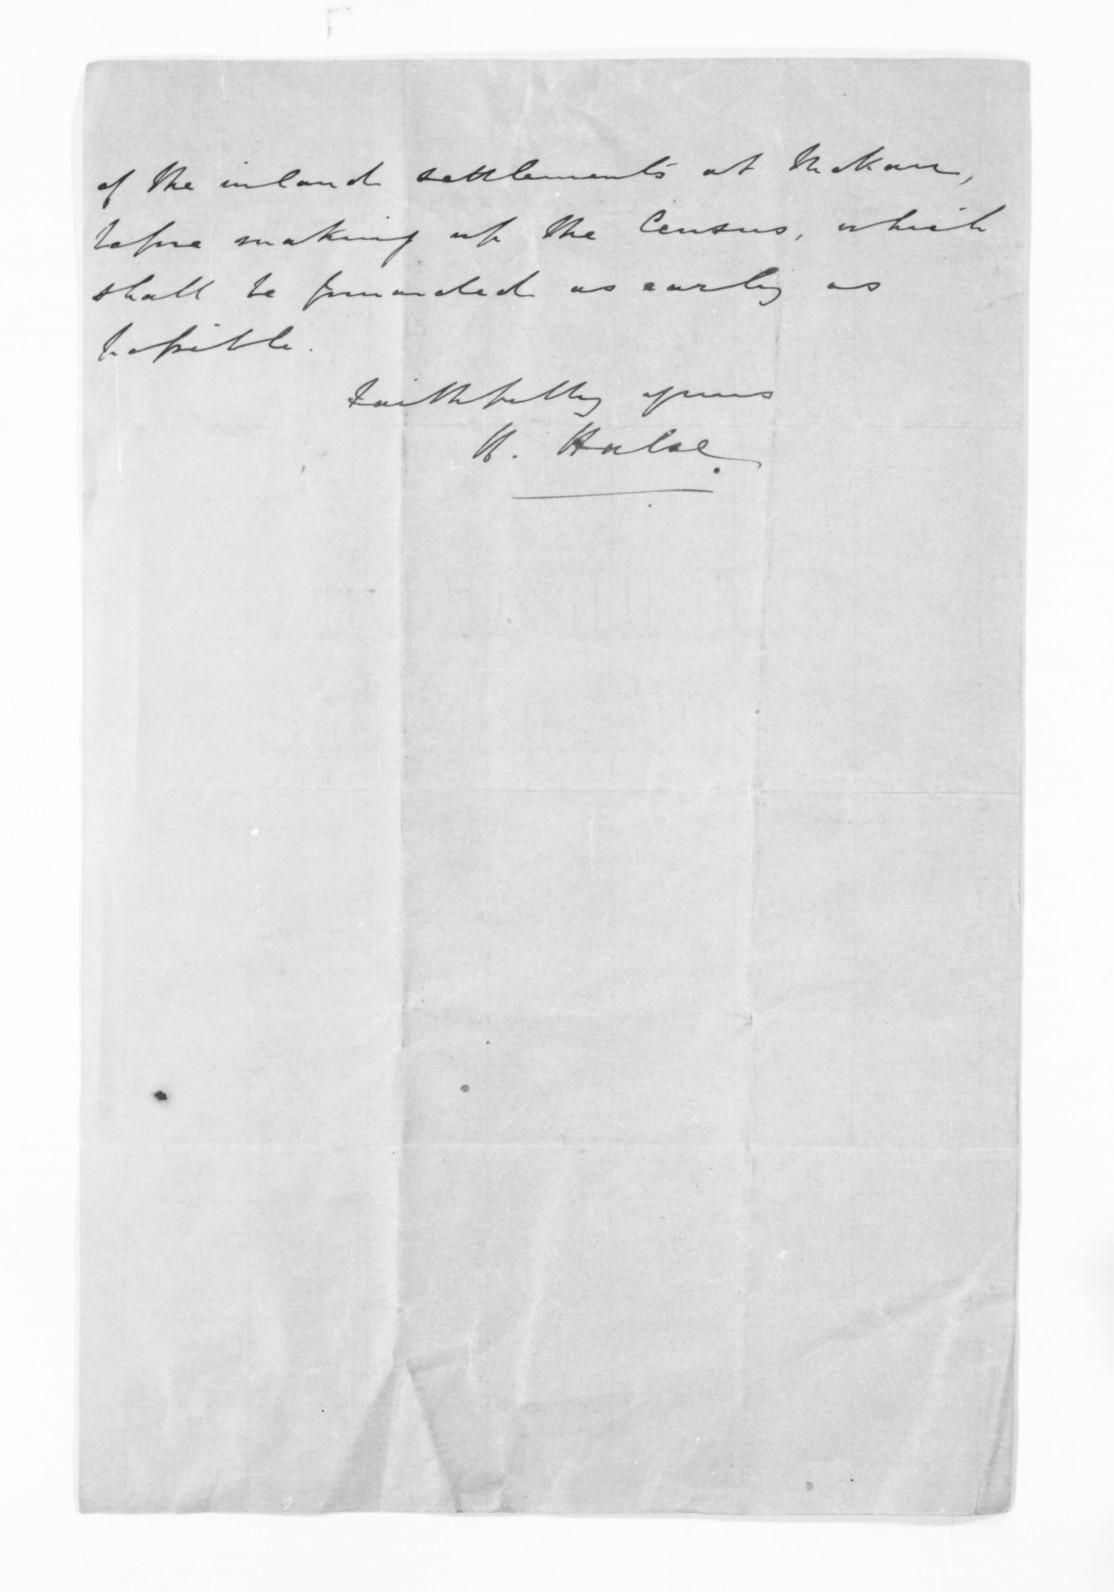 of the inland settlements at Mokau,
before making up the Census, which
shall be forwarded as early as
possible.
Faithfully yours
H. Halse.